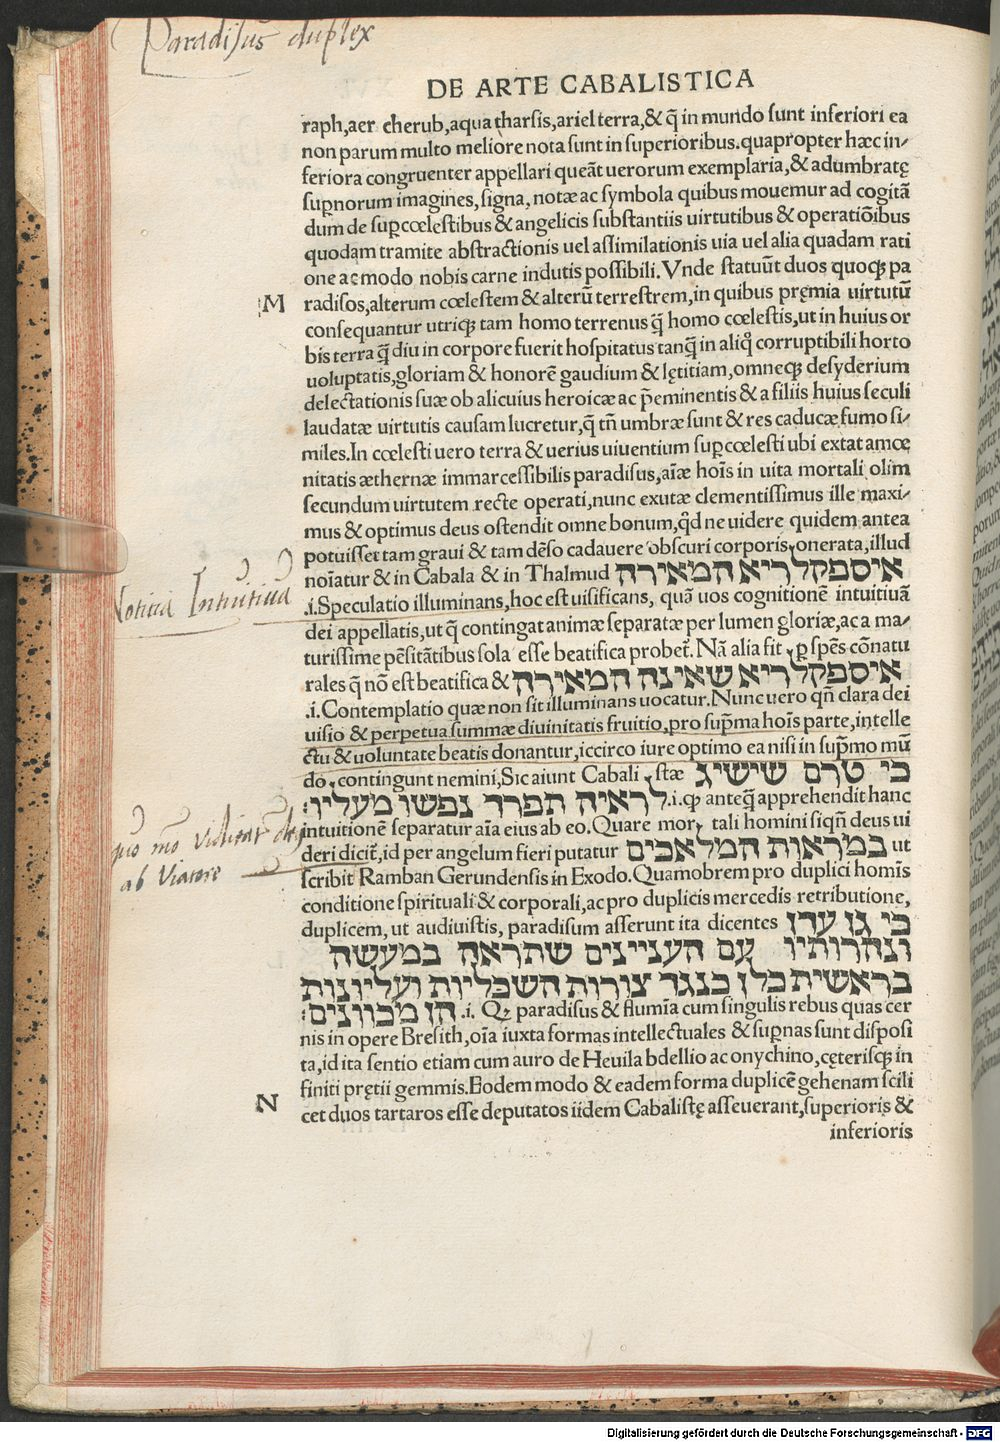 Paradisus duplex
DE ARTE CABALISTICA
raph,aer cherub,aqua tharsis,ariel terra,& q̃ in mundo sunt inferiori ea
non parum multo meliore nota sunt in superioribus.quapropter hæc in⸗
feriora congruenter appellari queãt uerorum exemplaria,& adumbratę
suꝑnorum imagines,signa,notæ ac symbola quibus mouemur ad cogitã
dum de suꝑcœlestibus & angelicis substantiis uirtutibus & operatiõibus
quodam tramite abstractionis uel assimilationis uia uel alia quadam rati
one ac modo nobis carne indutis possibili.Vnde statuũt duos quoqꝫ pa
M
radisos,alterum cœlestem & alterũ terrestrem,in quibus pręmia uirtutũ
consequantur utriqꝫ tam homo terrenus q̃ homo cœlestis,ut in huius or
bis terra q̃ diu in corpore fuerit hospitatus tanq̃ in aliq̃ corruptibili horto
uoluptatis,gloriam & honorẽ gaudium & lętitiam,omneqꝫ desyderium
delectationis suæ ob alicuius heroicæ ac p̃eminentis & a filiis huius seculi
laudatæ uirtutis causam lucretur,q̃ tñ umbræ sunt & res caducæ fumo si⸗
miles.In cœlesti uero terra & uerius uiuentium suꝑcœlesti ubi extat amœ
nitatis æthernæ immarcessibilis paradisus,aĩæ hoĩs in uita mortali olim
secundum uirtutem recte operati,nunc exutæ clementissimus ille maxi⸗
mus & optimus deus ostendit omne bonum,q̃d ne uidere quidem antea
potuisset tam graui & tam dẽso cadauere obscuri corporis onerata,illud
noĩatur & in Cabala & in Thalmud איספקלריא המאירה
Notitia Intuitiua
.i.Speculatio illuminans,hoc est uisificans, quã uos cognitionẽ intuitiuã
dei appellatis,ut q̃ contingat animæ separatæ per lumen gloriæ,ac a ma⸗
turissime pẽsitãtibus sola esse beatifica probet̃. Nã alia fit ꝑ spẽs cõnatu
rales q̃ nõ est beatifica & איספקלריא שאינה המאירה
.i.Contemplatio quæ non sit illuminans uocatur.Nunc uero qñ clara dei
uisio & perpetua summæ diuinitatis fruitio,pro sup̃ma hoĩs parte,intelle
ctu & uoluntate beatis donantur,iccirco iure optimo ea nisi in sup̃mo mũ
do contingunt nemini,Sic aiunt Cabali stæ כי טרם שישיג
לראיה תפרד נפשו מעליו: .i.qꝫ anteq̃ apprehendit hanc
intuitionẽ separatur aĩa eius ab eo.Quare mor tali homini siqñ deus ui
quo mo Viditur deus
ab Viatore
deri dicit̃,id per angelum fieri putatur במראות המלאכים ut
scribit Ramban Gerundensis in Exodo.Quamobrem pro duplici homĩs
conditione spirituali & corporali,ac pro duplicis mercedis retributione,
duplicem, ut audiuistis, paradisum asserunt ita dicentes כי גן עדן
ונהרותיו עם העניינים שתראה במעשה
בראשית כלן כנגד צורות השכליות ועליונות
הן מכוונים: .i. Qꝫ paradisus & flumĩa cum singulis rebus quas cer
nis in opere Bresith,oĩa iuxta formas intellectuales & suꝑnas sunt disposi
ta,id ita sentio etiam cum auro de Heuila bdellio ac onychino,cęterisqꝫ in
finiti prętii gemmis.Eodem modo & eadem forma duplicẽ gehenam scili
N
cet duos tartaros esse deputatos iidem Cabalistę asseuerant,superioris &
inferioris
Digitalisierung gefördert durch die Deutsche Forschungsgemeinschaft - DFG